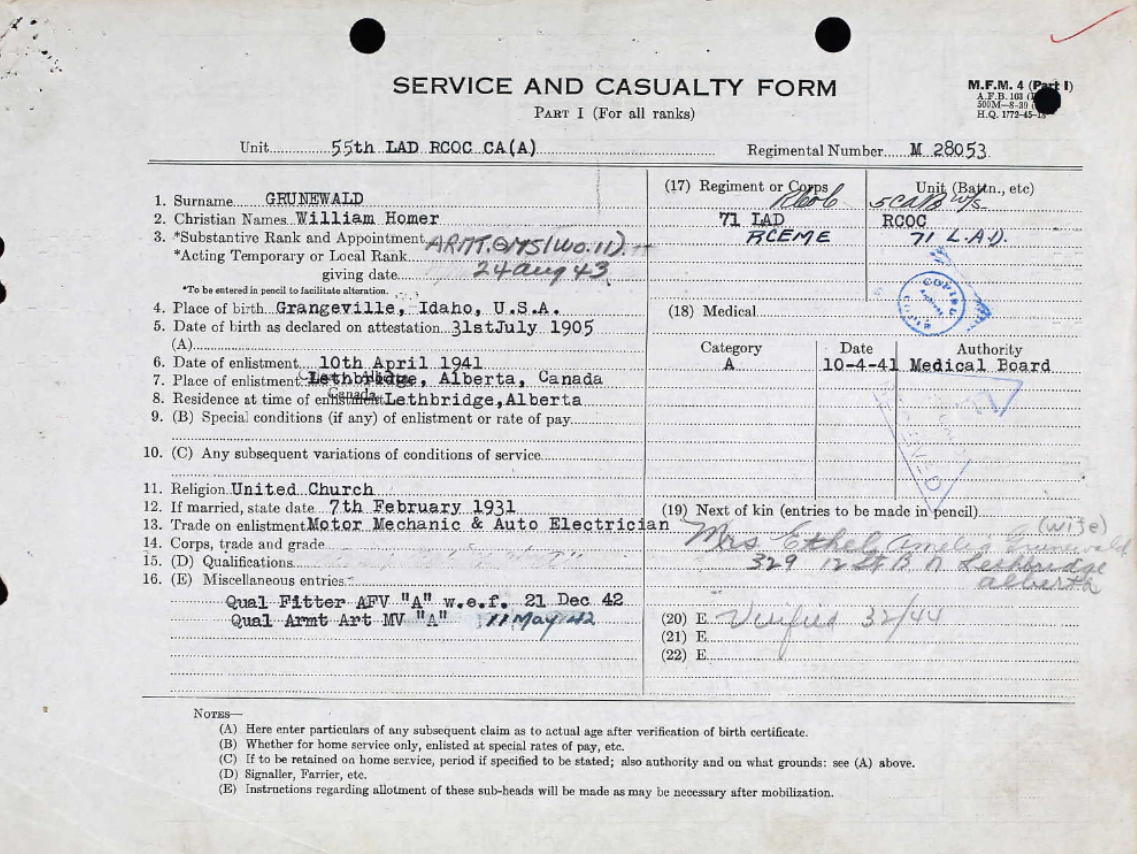 SERVICE AND CASUALTY FORM
PART I (For all ranks)
M.F.M. 4 (Part I)
A.F.B. 103
500M—8-39
H.Q. 1772-45-
Unit 55th LAD RCOC CA(A)
Regimental Number M 28053
1. Surname GRUNEWALD
2. Christian Names William Homer
3. *Substantive Rank and Appointment ARMT.QMS(WO.11).
*Acting Temporary or Local Rank
giving date 24 Aug 43
*To be entered in pencil to facilitate alteration.
4. Place of birth Grangeville, Idaho, U.S.A.
5. Date of birth as declared on attestation 31stJuly 1905
(A)
6. Date of enlistment 10th April 1941
7. Place of enlistment Lethbridge, Alberta, Canada
Canada
8. Residence at time of enlistment Lethbridge,Alberta
9. (B) Special conditions (if any) of enlistment or rate of pay
10. (C) Any subsequent variations of conditions of service
11. Religion United Church
12. If married, state date 7th February 1931
13. Trade on enlistment Motor Mechanic & Auto Electrician
14. Corps, trade and grade
15. (D) Qualifications
16. (E) Miscellaneous entries
Qual Fitter AFV "A" w.e.f. 21 Dec 42
Qual Armt Art MV "A" 11 May 42
(17) Regiment or Corps
Unit (Battn., etc)
71 LAD RCOC
RCEME 71 L.A.D.
COPIED
(18) Medical
Category Date Authority
A 10-4-41 Medical Board
(19) Next of kin (entries to be made in pencil)
(wife)
Mrs Ethel Amelia Grunewald
329 12 St B N Lethbridge
alberta
(20) E. Verified 32/44
(21) E.
(22) E.
NOTES—
(A) Here enter particulars of any subsequent claim as to actual age after verification of birth certificate.
(B) Whether for home service only, enlisted at special rates of pay, etc.
(C) If to be retained on home service, period if specified to be stated; also authority and on what grounds: see (A) above.
(D) Signaller, Farrier, etc.
(E) Instructions regarding allotment of these sub-heads will be made as may be necessary after mobilization.